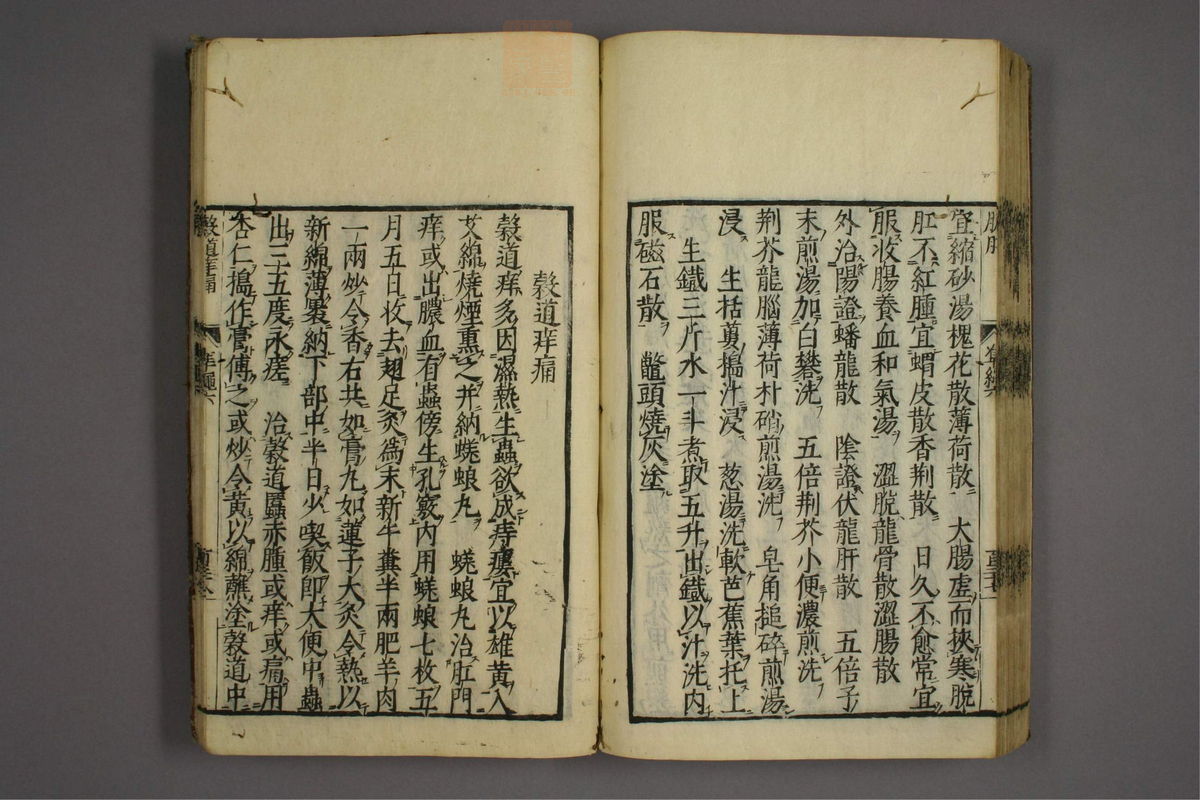 宜縮砂湯槐花散薄荷散　大腸虛而挾寒脫
肛不紅腫宜蝟皮散香荆散　日久不愈常宜
服液腸養血和氣湯　澀脫龍骨散澀腸散
外治陽證蟠龍散　陰證伏龍肝散　五倍子
末煎湯加白礬洗　五倍荆芥小便濃煎洗
荆芥龍腦薄荷朴硝煎湯洗　皂角搥碎煎湯
浸　生栝蔞搗汁浸　葱湯洗軟芭蕉葉托上
生鐵三斤水一斗煮取五升出鐵以汁洗內
服磁石散　鼈頭燒灰塗
穀道痒痛
穀道痒多因濕熱生蟲欲成痔瘻宜以雄黃入
艾綿燒煙熏之并納蜣蜋丸　蜣蜋丸治肛門
痒或出膿血有蟲傍生孔竅內用蜣蜋七枚五
月五日收去翅足炙為末新牛糞半兩肥羊肉
一兩炒令香右共如膏丸如蓮子大炙令熱以
新綿薄裹納下部中半日少喫飯卽大便中蟲
出三五度永瘥　治穀道䘌蟲赤腫或痒或痛用
杏仁搗作膏傅之或炒令黃以綿蘸塗穀道中
穀道痒痛